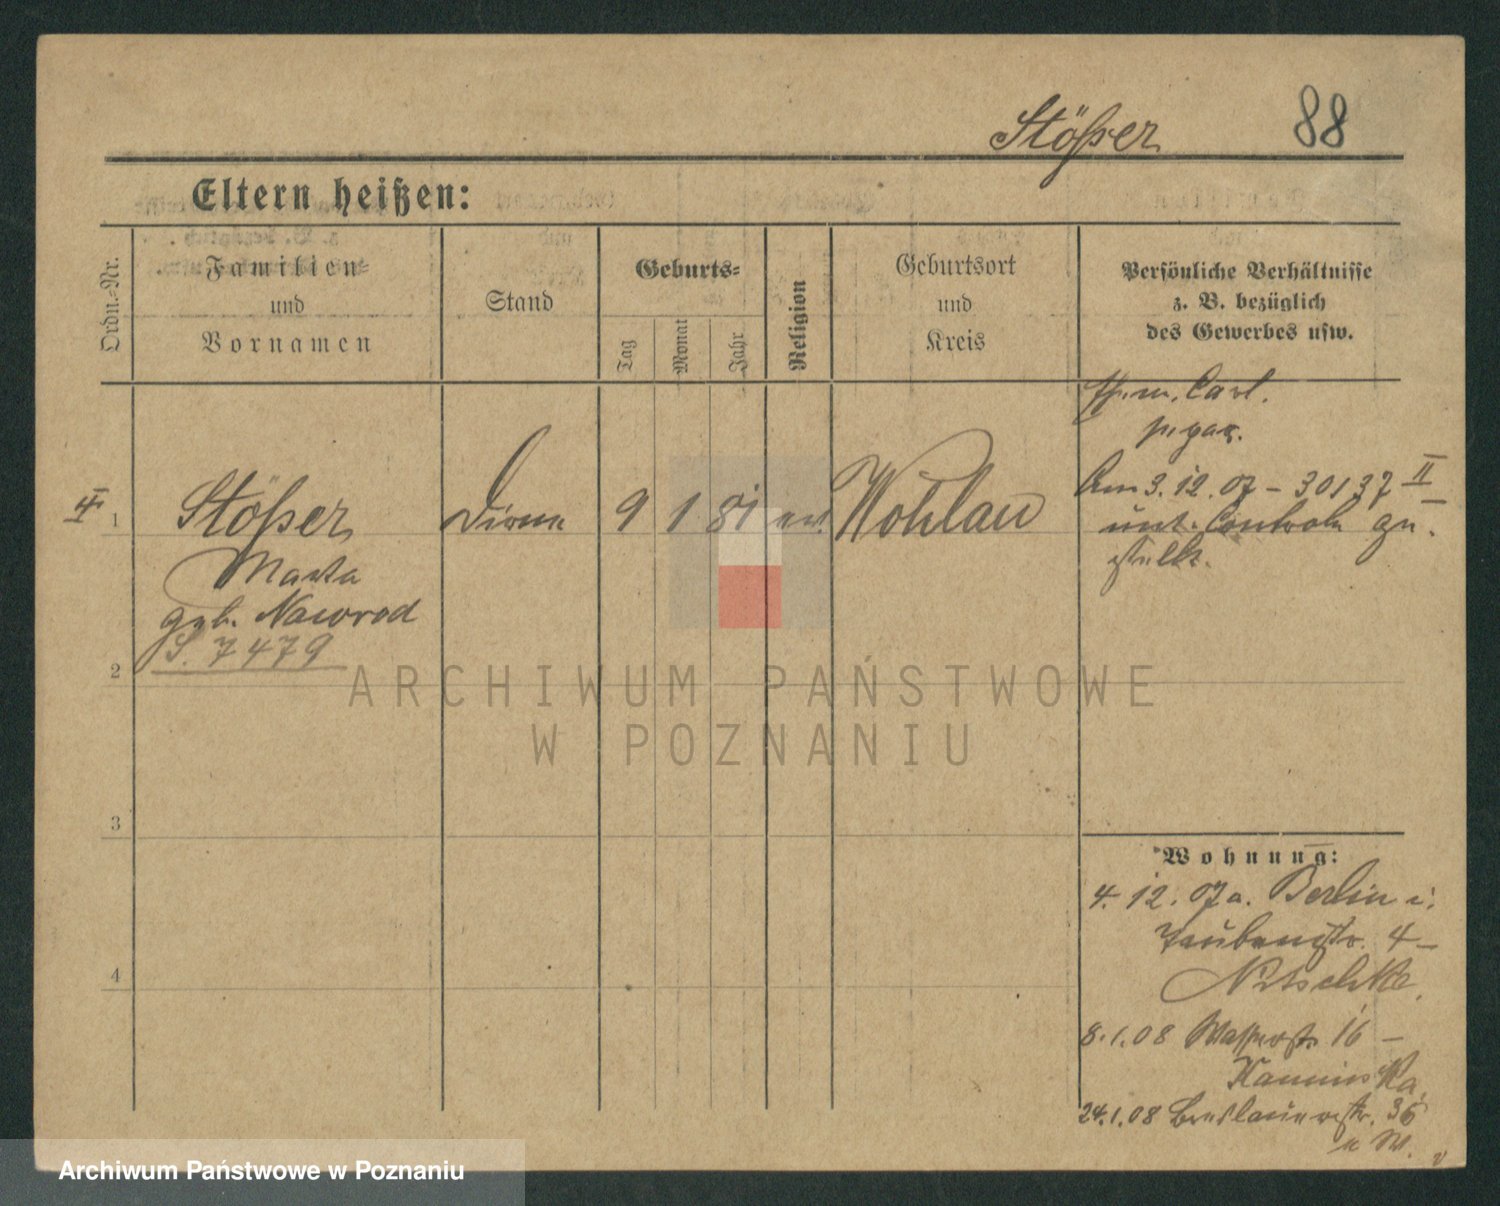 Stößer 88
Eltern heißen:
Ordn.-Nr.
Familien-
und
Vornamen
Stand
Geburts-
Tag
Monat
Jahr
Religion
Geburtsort
und
Kreis
Persönliche Verhältnisse
z. B. bezüglich
des Gewerbes usw.
Carl.
Am 3.12.07 - 30137 II
unt. Controle ge-
stellt.
1 Stößer Dirne 9 1 81 ev. Wohlau
Marta
geb. Nawrod
S. 7479
2
3
4
Wohnung:
4.12.07 a. Berlin i.
Taubenstr. 4 -
Nitschke.
8.1.08 Wasserstr 16 -
Kaminska
24.1.08 Breslauerstr. 36
ARCHIWUM PAŃSTWOWE
W POZNANIU
Archiwum Państwowe w Poznaniu